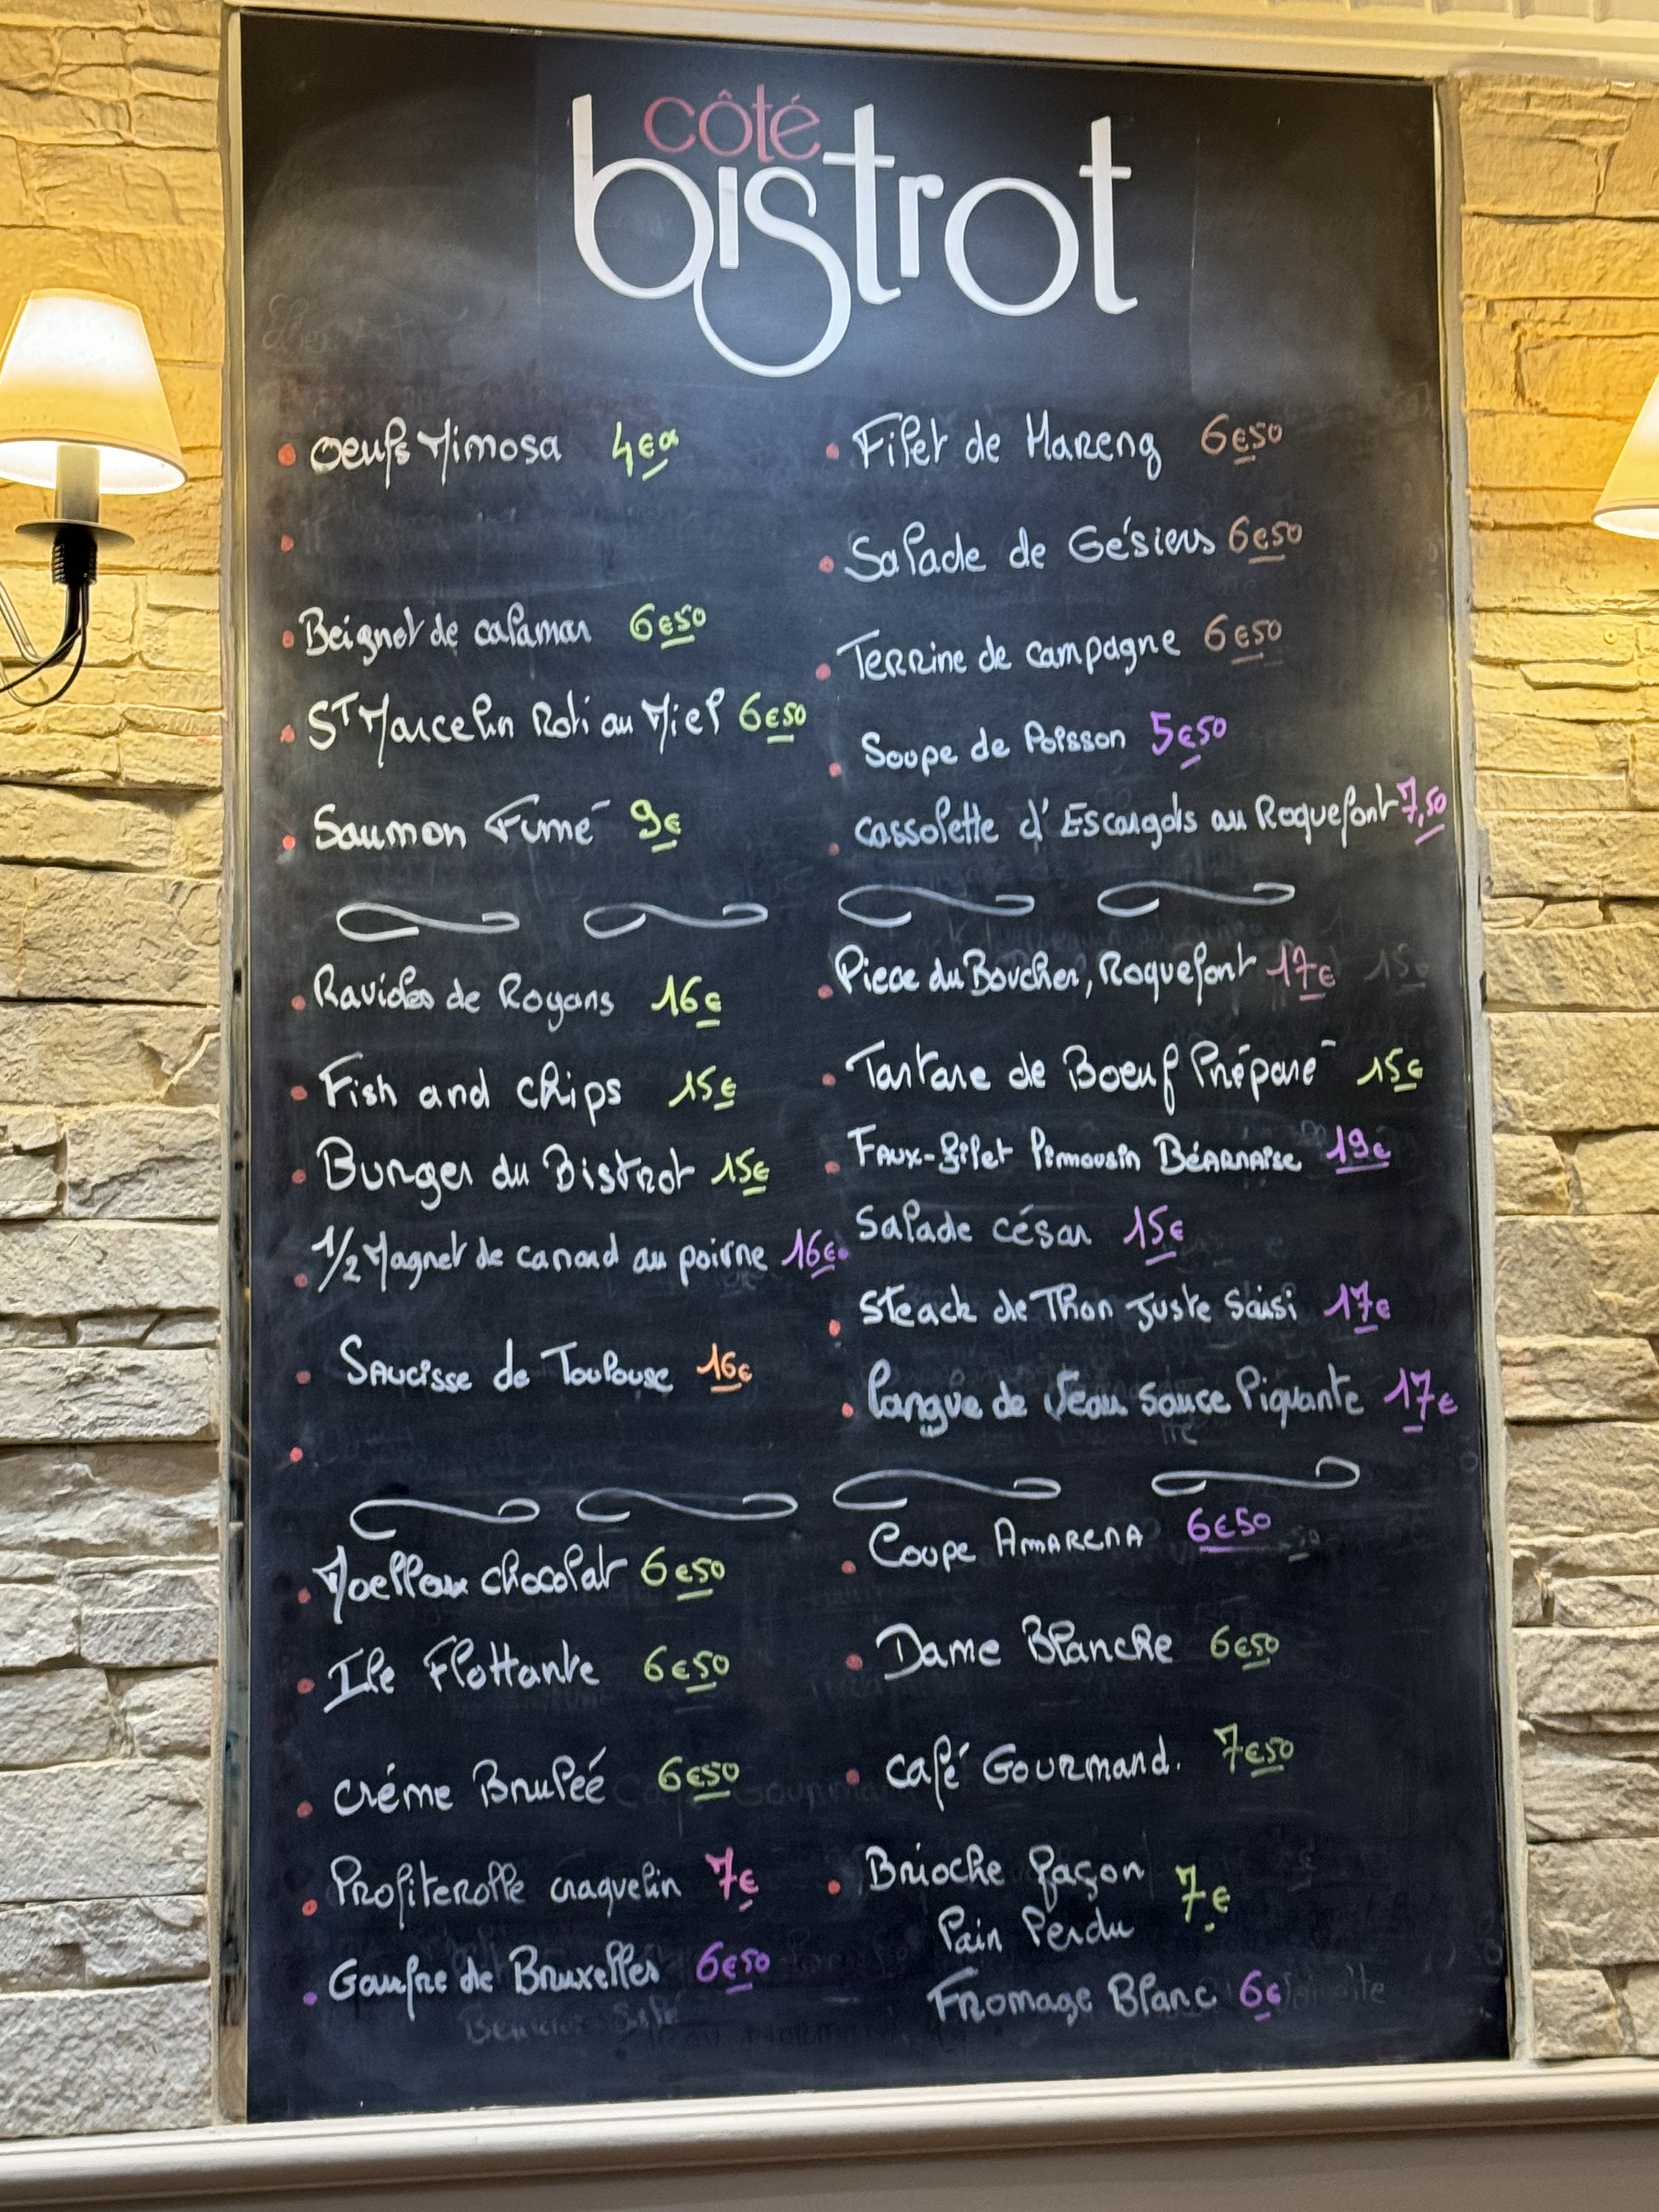 côté
bistrot
Oeufs Mimosa 4€
Beignet de calamar 6€50
St Marcelin Roti au Miel 6€50
Saumon Fumé 9€
Filet de Hareng 6€50
Salade de Gésiers 6€50
Terrine de campagne 6€50
Soupe de Poisson 5€50
Cassolette d'Escargots au Roquefort 7,50
Ravioles de Royans 16€
Fish and chips 15€
Burger du Bistrot 15€
1/2 Magret de canard au poivre 16€
Saucisse de Toulouse 16€
Piece du Boucher, Roquefort 17€
Tartare de Boeuf Préparé 15€
Faux-filet limousin Béarnaise 19€
Salade césar 15€
Steack de Thon juste saisi 17€
Langue de Veau sauce Piquante 17€
Moelleux chocolat 6€50
Ile Flottante 6€50
Créme Bruléé 6€50
Profiterolle craquelin 7€
Gaufre de Bruxelles 6€50
Coupe Amarena 6€50
Dame Blanche 6€50
Café Gourmand. 7€50
Brioche façon 7€
Pain Perdu
Fromage Blanc 6€